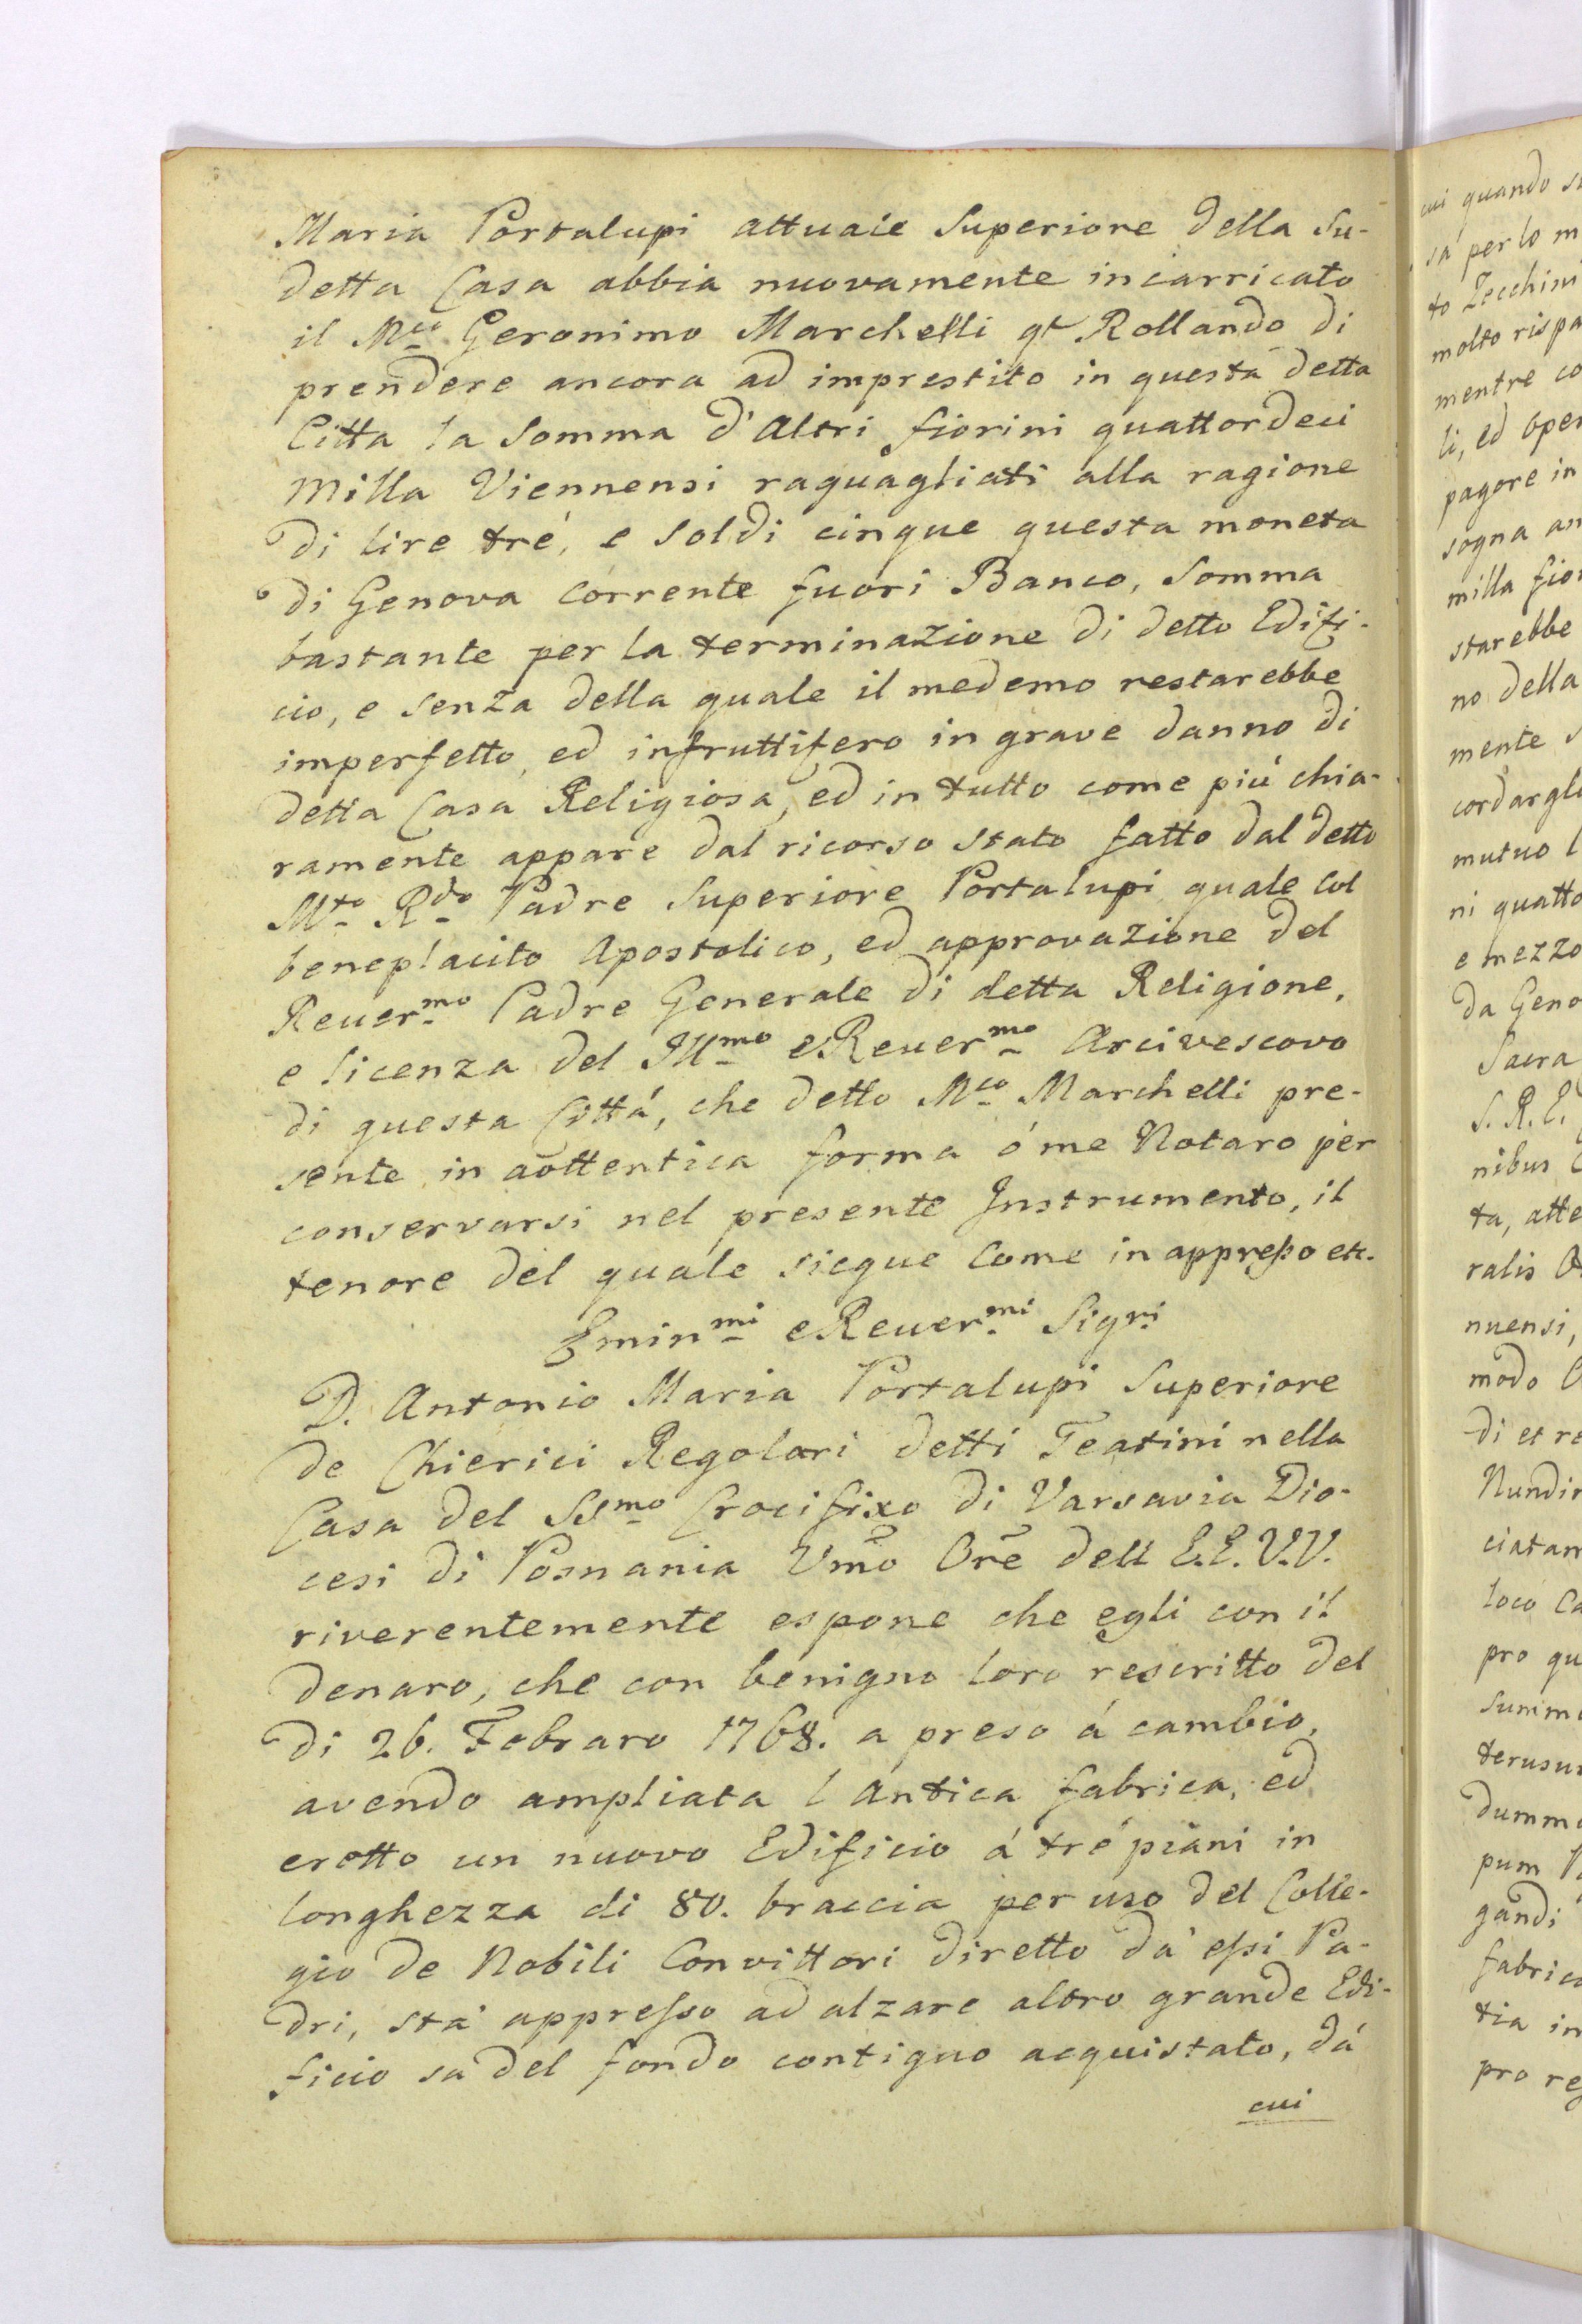 Maria Portalupi attuale Superiore della Su-
detta Casa abbia nuovamente incarricato
il Mco Geronimo Marchelli qt Rollando di
prendere ancora ad imprestito in questa detta
Citta la Somma d'Altri fiorini quattordeci
Milla Viennensi raguagliati alla ragione
di lire tré, e Soldi cinque questa moneta
di Genova Corrente fuori Banco, Somma
bastante per la terminazione di detto Edifi-
cio, e senza della quale il medemo restarebbe
imperfetto, ed infruttifero in grave danno di
detta Casa Religiosa, ed in tutto come più chia-
ramente appare dal ricorso stato fatto dal detto
Mto Rdo Padre Superiore Portalupi quale Col
beneplacito Apostolico, ed approvazione del
Reuermo Padre Generale di detta Religione,
e licenza del Illmo e Reuermo Arcivescovo
di questa Città, che detto Mco Marchelli pre-
sente in aottentica forma ó me Notaro per
conservarsi nel presente Instrumento, il
tenore del quale siegue Come in appresso etc.
Eminmi e Reuermi Sigri
D. Antonio Maria Portalupi Superiore
de Chierici Regolari detti Teatini nella
Casa del SSmo Crocifixo di Varsavia Dio-
cesi di Posnania Vmo Ore dell E.E. V.V.
riverentemente espone che egli con il
denaro, che con benigno loro rescritto del
di 26. Febraro 1768. a preso á cambio,
avendo ampliata l Antica fabrica, ed
erotto un nuovo Edificio á tré piani in
longhezza di 80. braccia per uso del Colle-
gio de Nobili Convittori diretto dà essi Pa-
dri, stà appresso ad alzare altro grande Edi-
ficio sa del fondo contiguo acquistato, dá
cui
cui quando s
sà per lo m
to Zecchini
molto rispa
mentre co
li, ed oper
pagore in
sogna an
milla fior
starebbe
no della
mente s
cordargli
mutuo l
ni quatto
e mezzo
da Geno
Sacra
S. R. E.
nibus
ta, atte
ralis
nuensi,
modo
di et re
Nundin
ciatam
loco Ca
pro qu
Summa
terusur
dumma
pum
gandi
fabric
tia in
pro reg